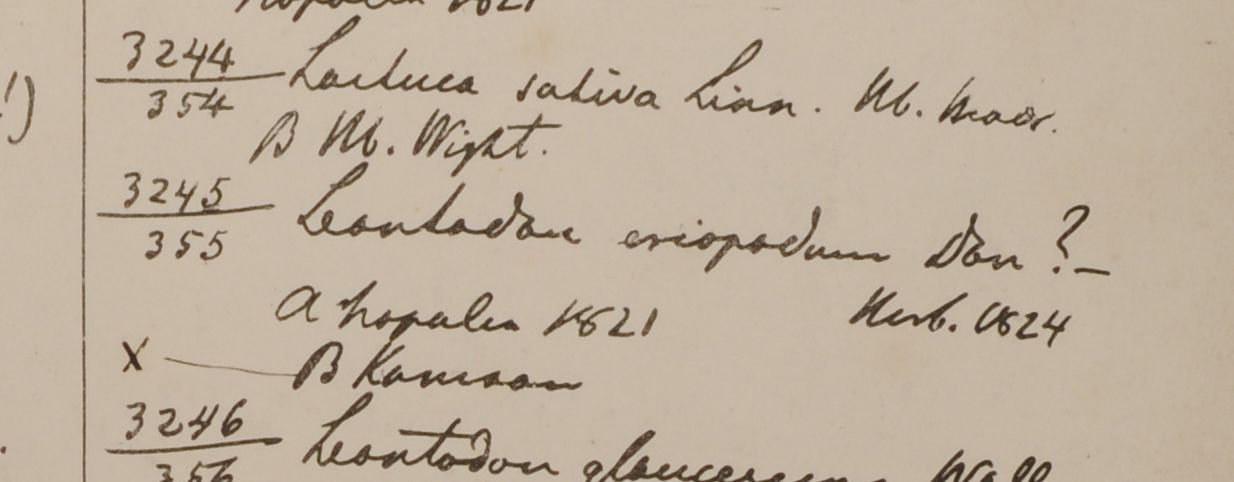 Napalia 1821
3244 Lactuca sativa Linn. Hb. Madr.
354
B Hb. Wight.
3245 Leontodon eriopodum Don ?-
355
a Napalia 1821 Herb. 1824
X B Kamaon
3246 Leontodon glaucescens Wall
356